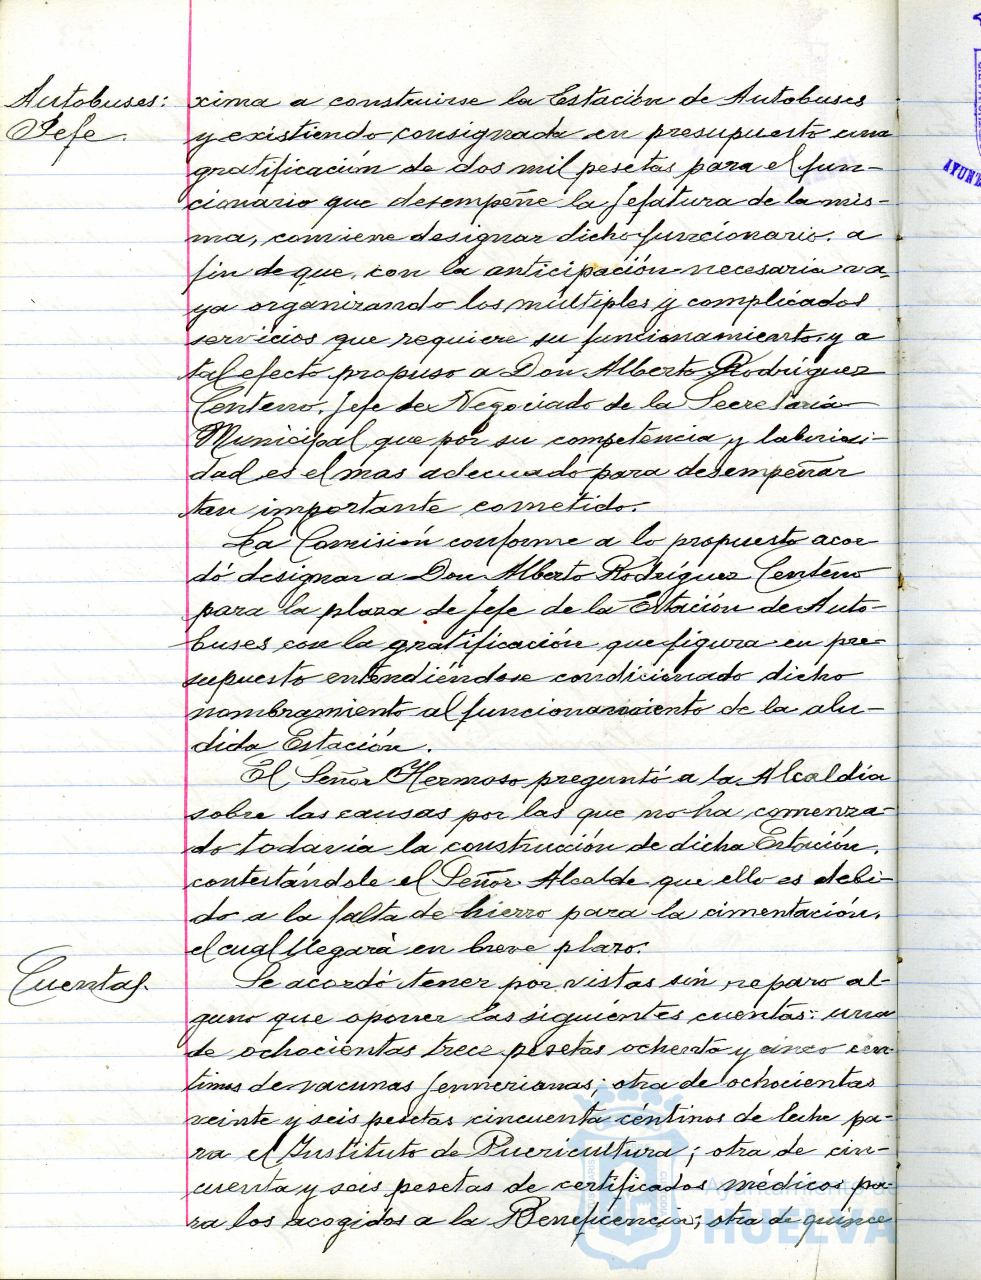 Autobuses:
Jefe.
xima a construirse la Estación de Autobuses
y existiendo consignada en presupuesto una
gratificación de dos mil pesetas para el fun-
cionario que desempeñe la Jefatura de la mis-
ma, conviene designar dicho funcionario, a
fin de que, con la anticipación necesaria va-
ya organizando los múltiples y complicados
servicios que requiere su funcionamiento, y a
tal efecto propuso a Don Alberto Rodríguez
Centeno, Jefe de Negociado de la Secretaría
Municipal, que por su competencia y laboriosi-
dad es el mas adecuado para desempeñar
tan importante cometido.
La Comisión conforme a lo propuesto acor
dó designar a Don Alberto Rodríguez Centeno
para la plaza de Jefe de la Estación de Auto-
buses con la gratificación que figura en pre-
supuesto entendiéndose condicionado dicho
nombramiento al funcionamiento de la alu-
dida Estación.
El Señor Hermoso preguntó a la Alcaldía
sobre las causas por las que no ha comenza-
do todavía la construcción de dicha Estación,
contestándole el Señor Alcalde que ello es debi-
do a la falta de hierro para la cimentación,
el cual llegará en breve plazo.
Cuentas.
Se acordó tener por vistas sin reparo al-
guno que oponer las siguientes cuentas: una
de ochocientas trece pesetas ochenta y cinco cén-
timos de vacunas Jennerianas; otra de ochocientas
veinte y seis pesetas cincuenta céntimos de leche pa-
ra el Instituto de Puericultura; otra de cin-
cuenta y seis pesetas de certificados médicos pa-
ra los acogidos a la Beneficencia; otra de quince
Ayuntamiento de
HUELVA